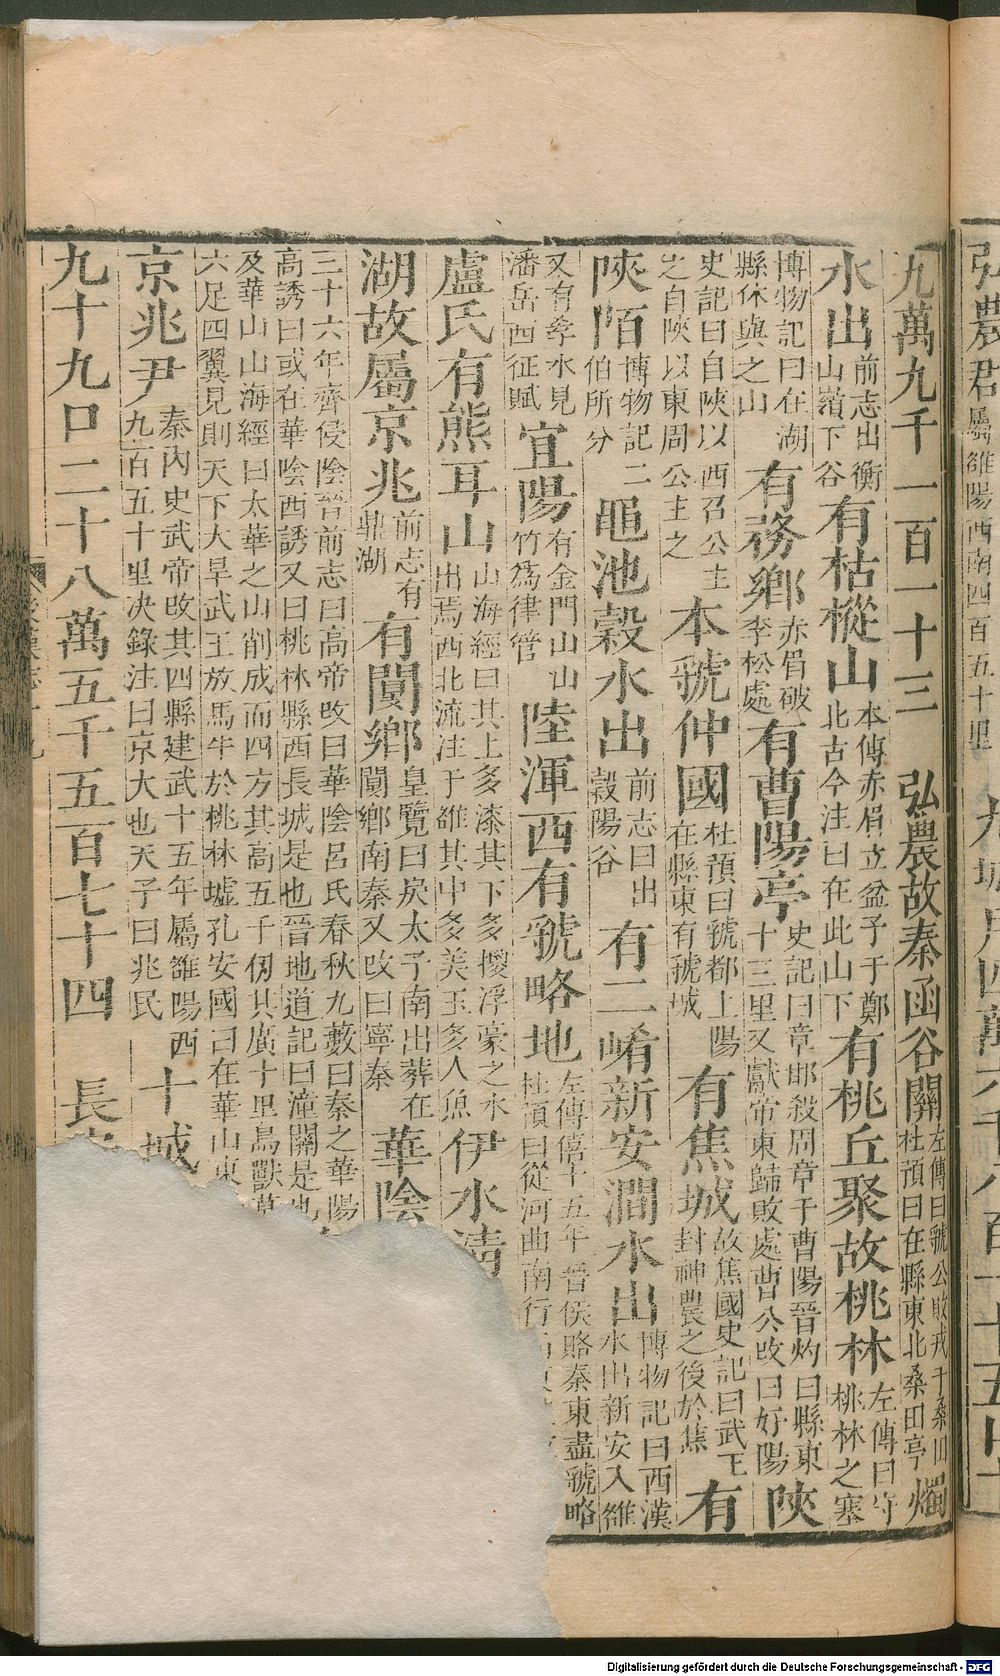 弘農郡屬雒陽西南四百五十里
九萬九千一百一十三　弘農故秦函谷關左傳曰虢公敗戎于桑田杜預曰在縣東北桑田亭燭
水出前志出衡山嶺下谷有枯樅山本傳赤眉立盆子于鄭北古今注曰在此山下有桃丘聚故桃林左傳曰守桃林之塞
博物記曰在湖縣休與之山有務鄉赤眉破李松處有曹陽亭史記曰章邯殺周章于曹陽晉灼曰縣東十三里又獻帝東歸敗處曹公改曰好陽陝
史記曰自陝以西召公主之自陝以東周公主之本虢仲國杜預曰虢都上陽在縣東有虢城有焦城故焦國史記曰武王封神農之後於焦有
陝陌博物記二伯所分黽池穀水出前志曰出穀陽谷有二崤新安澗水出博物記曰西漢水出新安入雒
又有㚅水見潘岳西征賦宜陽有金門山山竹爲律管陸渾西有虢略地左傳僖十五年晉侯賂秦東盡虢略杜預曰從河曲南行
盧氏有熊耳山山海經曰其上多漆其下多㯶浮豪之水出焉西北流注于雒其中多美玉多人魚伊水淸
湖故屬京兆前志有鼎湖有閿鄉皇覽曰戾太子南出葬在閿鄉南秦又改曰寧秦華陰
三十六年齊侵陰晉前志曰高帝改曰華陰呂氏春秋九藪曰秦之華陽高誘曰或在華陰西誘又曰桃林縣西長城是也晉地道記曰潼關是也
及華山山海經曰太華之山削成而四方其高五千仞其廣十里鳥獸莫六足四翼見則天下大旱武王放馬牛於桃林墟孔安國曰在華山東
京兆尹秦內史武帝改其四縣建武十五年屬雒陽西九百五十里決錄注曰京大也天子曰兆民十城
九十九口二十八萬五千五百七十四　長
Digitalisierung gefördert durch die Deutsche Forschungsgemeinschaft - DFG